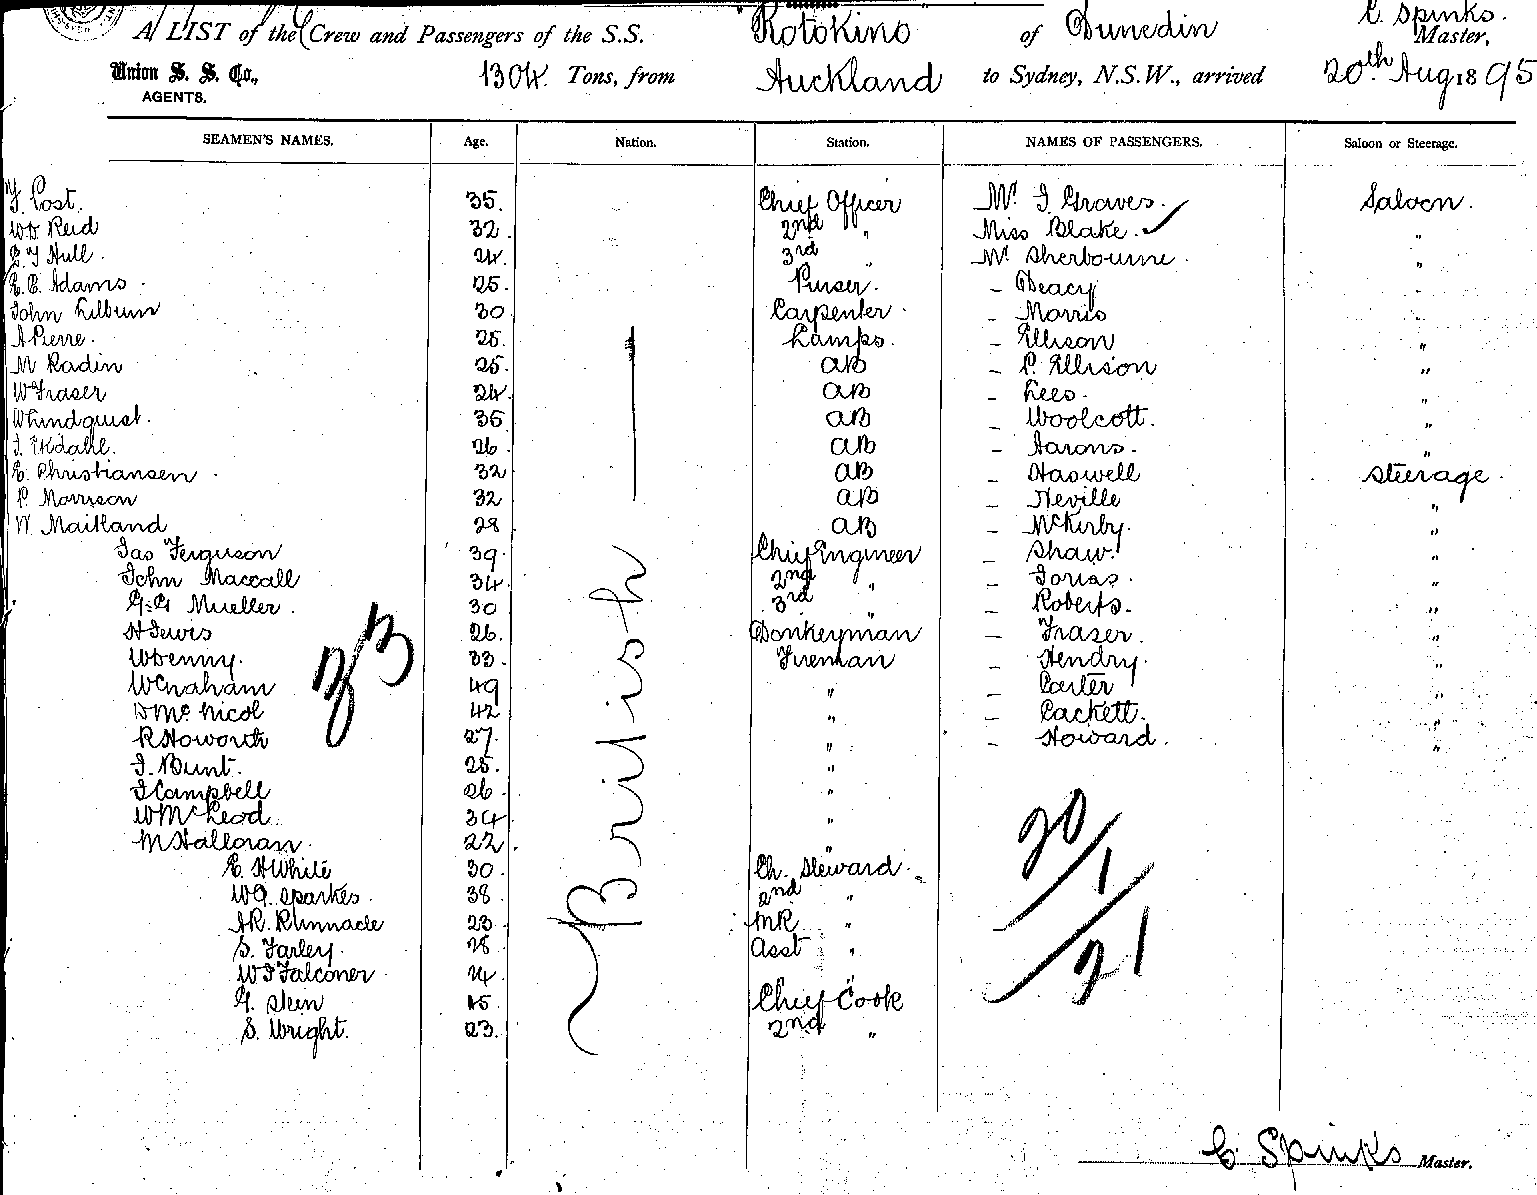 A LIST of the Crew and Passengers of the S.S. Rotokino of Dunedin C. Spinks. Master,
Union S. S. Co., 1304 Tons, from Auckland to Sydney, N.S.W., arrived 20th Aug 1895
AGENTS.
SEAMEN'S NAMES. Age. Nation. Station. NAMES OF PASSENGERS. Saloon or Steerage.
Post. 35. Chief Officer Mr. J Graves. Saloon.
WD Reid 32. 2nd " Miss Blake. "
Hull. 24. 3rd " Mr Sherbourne "
E.E. Adams 25. Purser. – Deacy "
John Lilburn 30 Carpenter. – Morris "
A Pierre. 25. Lamps. – Ellison "
M Radin 25. AB – P. Ellison "
W Fraser 24. AB – Lees. "
W Lindquist. 35 AB – Woolcott. "
J. Ekdahl. 26 AB – Aarons. "
E. Christiansen 32 AB – Haswell Steerage.
P Morrison 32 AB – Neville "
W. Maitland 28 AB – McKirby. "
Jas Ferguson 39. Chief Engineer – Shaw. "
John Maccall 34. 2nd " – Jonas. "
G.G Mueller. 30 3rd " – Roberts. "
H Lewis 26. Donkeyman – Fraser. "
W Denny. 33. Fireman – Hendry. "
W Graham 49 " – Carter "
D McNicol 42 " – Packett. "
R Howorth 27. " – Howard. "
J. Bunt. 25. "
J Campbell 26 "
W McLeod. 34 "
M Halloran. 22. "
E. H White 30. Ch. Steward.
W.A. Sparkes. 38 2nd "
A.R. Runnacle 23. MR "
S. Farley. 28 Asst "
WJ Falconer 24. "
G. Steen 45. Chief Cook
S. Wright. 23. 2nd "
British
33
20
1
21
C Spinks Master.